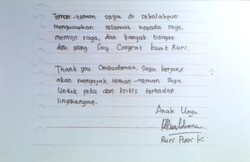 Teman-teman saya di sekolahpun
mengucapkan selamat kepada saya,
memuji saya, dan banyak banget
deh yang Say Congrat buat Ruri.
Thank you Ombudsman. Saya berjanji
akan mengajak teman-teman saya
untuk peka dan kritis terhadap
lingkungan.
Anak
Ruri Putri K